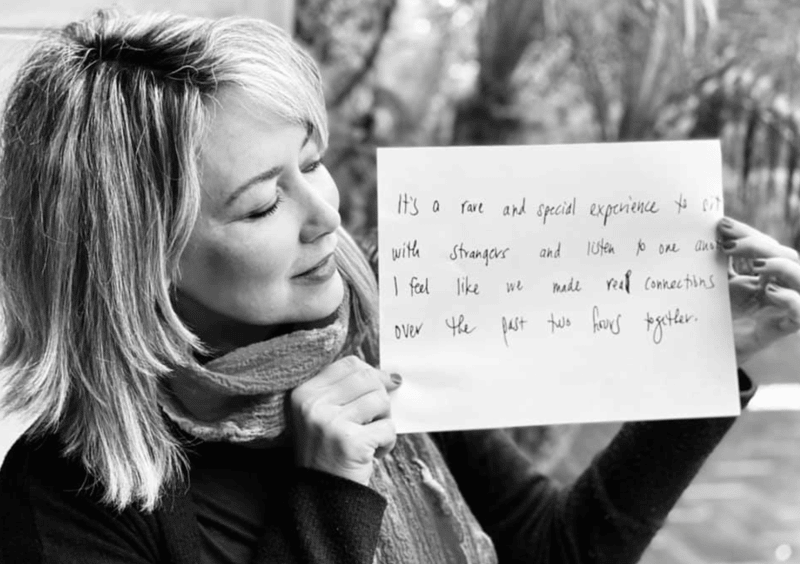 It's a rare and special experience to sit
with strangers and listen to one
I feel like we made real connections
over the past two hours together.